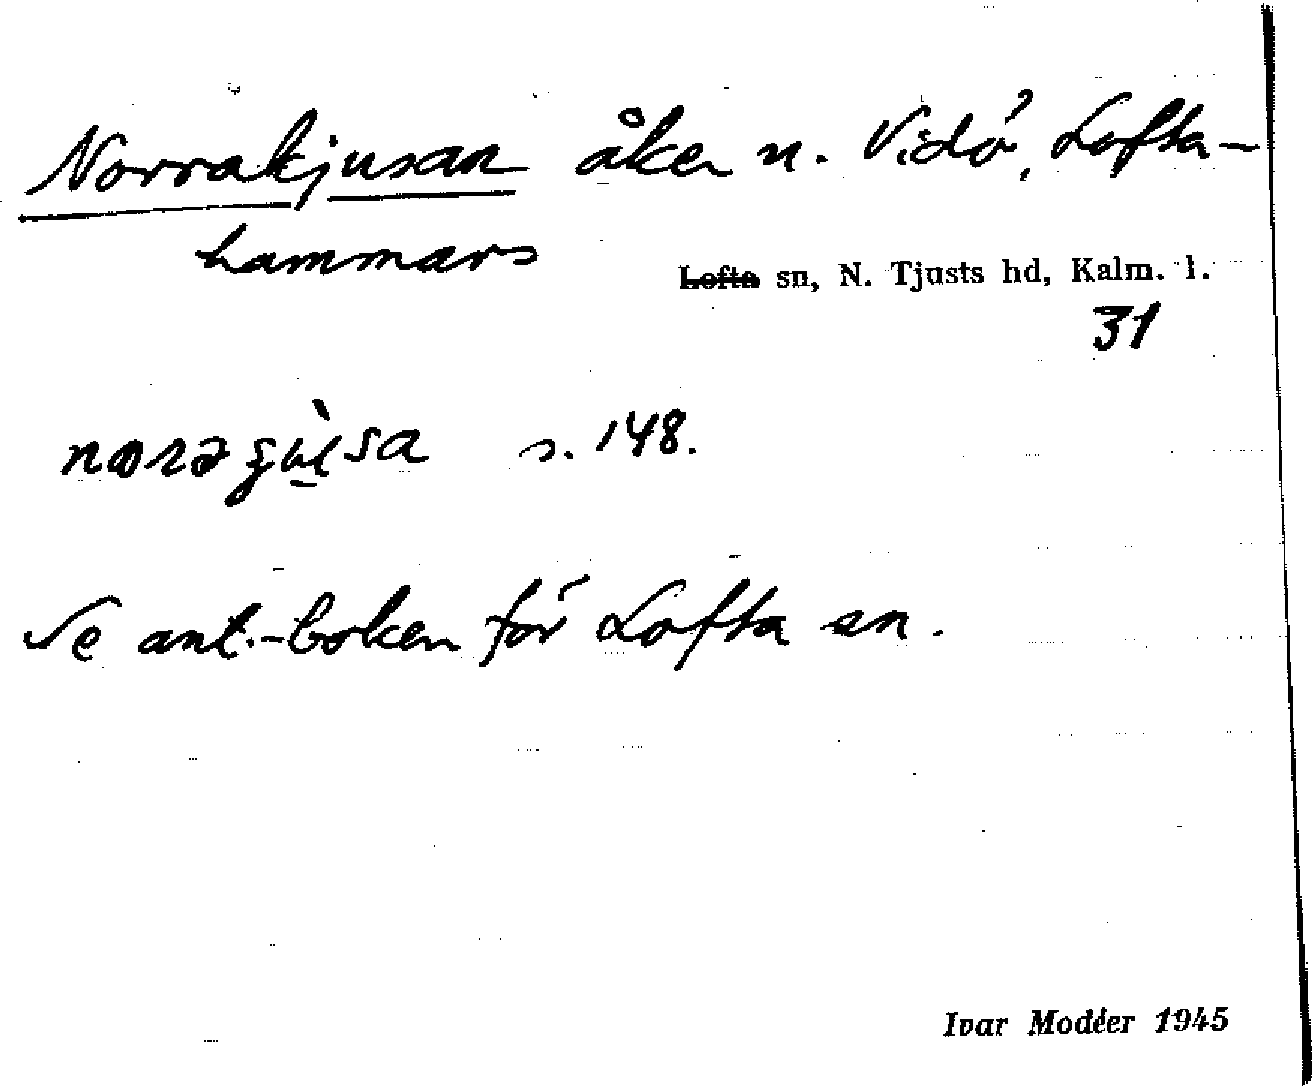 Norrakjusan åker n. Vidö, Lofta-
hammars
Lofta sn, N. Tjusts hd, Kalm. l.
31
s. 148.
Se ant.-boken för Lofta sn.
Ivar Modéer 1945